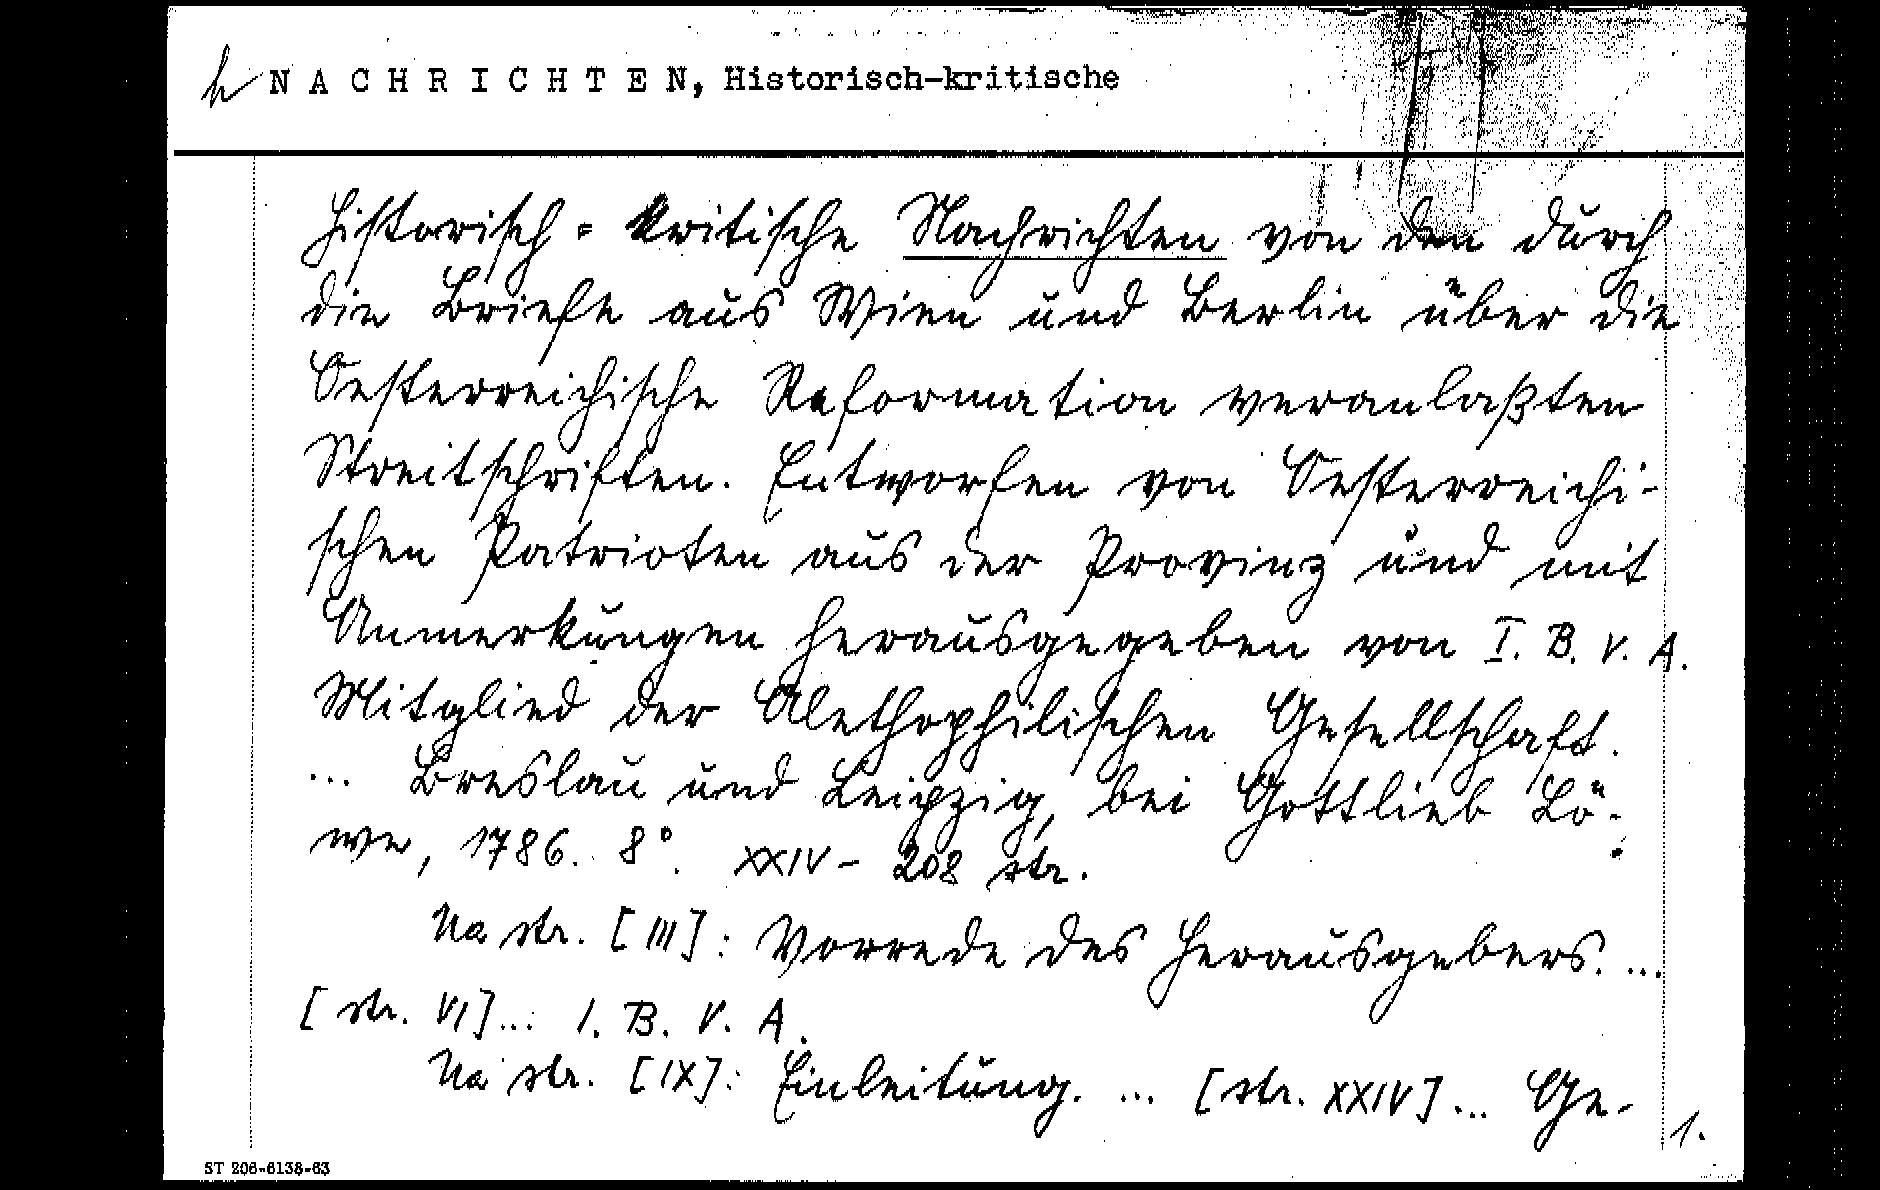 h NACHRICHTEN, Historisch-kritische
Historisch-kritische Nachrichten von den durch
die Briefe aus Wien und Berlin über die
Oesterreichische Reformation veranlaßten
Streitschriften. Entworfen von Oesterreichi-
schen Patrioten aus der Provinz und mit
Anmerkungen herausgegeben von I. B. V. A.
Mitglied der Alethophilischen Gesellschaft.
... Breslau und Leipzig, bei Gottlieb Lö-
we, 1786. 8°. XXIV - 208 str.
Na str. [III]: Vorrede des Herausgebers. ...
[str. VI]... I. B. V. A.
Na str. [IX]: Einleitung. ... [str. XXIV] ... Ge-
1.
ST 206-6138-63